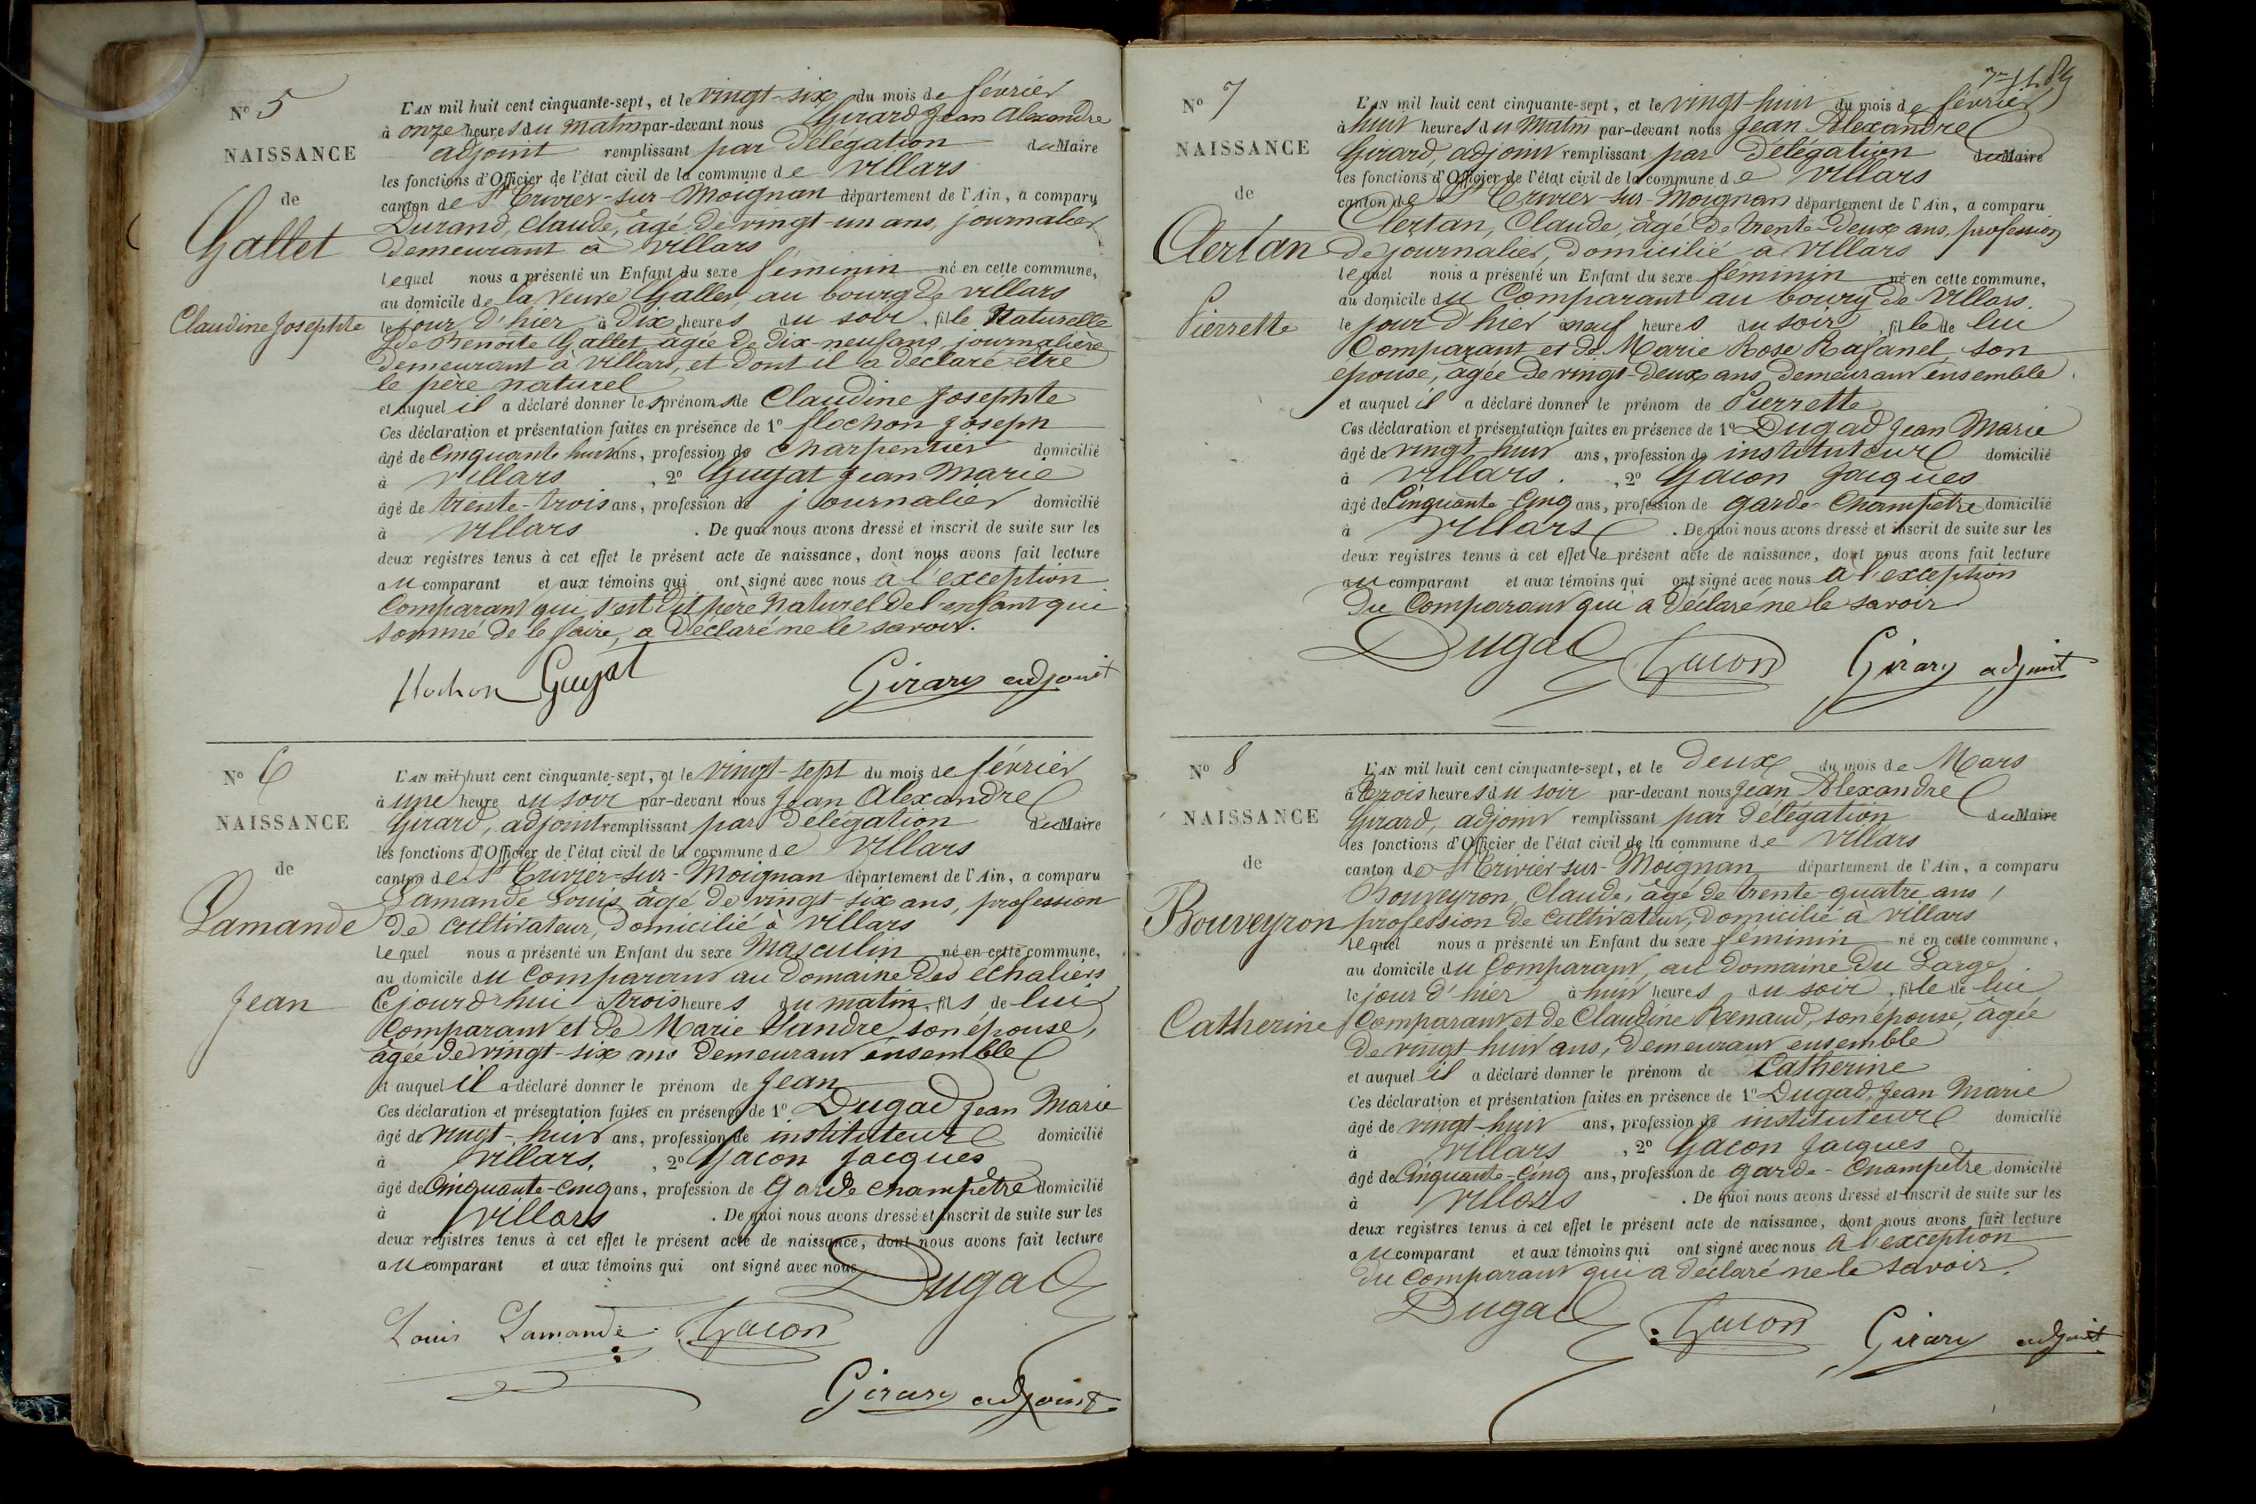 N° 5
NAISSANCE
de
Gallet
Claudine Josephte
L'AN mil huit cent cinquante-sept, et le vingt-six du mois de février
à onze heures du matin par-devant nous Girard Jean Alexandre
adjoint remplissant par délégation du Maire
les fonctions d'Officier de l'état civil de la commune de Villars
canton de St Trivier-sur-Moignan département de l'Ain, a comparu
Durand, Claude, âgé de vingt-un ans, journalier
demeurant à Villars
lequel nous a présenté un Enfant du sexe féminin né en cette commune,
au domicile de la Veuve Gallet au bourg de Villars
le jour d'hier à dix heures du soir, fille Naturelle
de Benoite Gallet âgée de dix-neuf ans, journalière
demeurant à Villars, et dont il a déclaré être
le père naturel
et auquel il a déclaré donner les prénoms de Claudine Josephte
Ces déclaration et présentation faites en présence de 1° flochon Joseph
âgé de Cinquante huit ans, profession de Charpentier domicilié
à Villars, 2° Guyat Jean Marie
âgé de trente-trois ans, profession de journalier domicilié
à Villars. De quoi nous avons dressé et inscrit de suite sur les
deux registres tenus à cet effet le présent acte de naissance, dont nous avons fait lecture
au comparant et aux témoins qui ont signé avec nous à l'exception
Comparant qui s'est dit père naturel de l'enfant qui
sommé de le faire, a déclaré ne le savoir.
flochon Guyat Girard adjoint
N° 6
NAISSANCE
de
Lamande
Jean
L'AN mil huit cent cinquante-sept, et le vingt-sept du mois de février
à une heure du soir par-devant nous Jean Alexandre
Girard, adjoint remplissant par délégation du Maire
les fonctions d'Officier de l'état civil de la commune de Villars
canton de St Trivier-sur-Moignan département de l'Ain, a comparu
Lamande Louis âgé de vingt-six ans, profession
de cultivateur, domicilié à Villars
lequel nous a présenté un Enfant du sexe Masculin né en cette commune,
au domicile du comparant au Domaine des échaliers
Ce jourd'hui à trois heures du matin, fils de lui
Comparant et de Marie Mandre son épouse,
âgée de vingt-six ans demeurant ensemble
et auquel il a déclaré donner le prénom de Jean
Ces déclaration et présentation faites en présence de 1° Dugad Jean Marie
âgé de vingt-huit ans, profession de instituteur domicilié
à Villars, 2° Gacon Jacques
âgé de Cinquante-Cinq ans, profession de Garde champêtre domicilié
à Villars. De quoi nous avons dressé et inscrit de suite sur les
deux registres tenus à cet effet le présent acte de naissance, dont nous avons fait lecture
au comparant et aux témoins qui ont signé avec nous
Dugad
Louis Lamande Gacon
Girard adjoint
N° 7
NAISSANCE
de
Clertan
Pierrette
L'AN mil huit cent cinquante-sept, et le vingt-huit du mois de février
à huit heures du Matin par-devant nous Jean Alexandre
Girard, adjoint remplissant par délégation du Maire
les fonctions d'Officier de l'état civil de la commune de Villars
canton de St Trivier-sur-Moignan département de l'Ain, a comparu
Clertan, Claude, âgé de trente-deux ans, profession
de journalier, domicilié à Villars
lequel nous a présenté un Enfant du sexe féminin né en cette commune,
au domicile du Comparant au bourg de Villars.
le jour d'hier à neuf heures du soir, fille de lui
Comparant et de Marie Rose Rafanel, son
épouse, âgée de vingt-deux ans demeurant ensemble.
et auquel il a déclaré donner le prénom de Pierrette
Ces déclaration et présentation faites en présence de 1° Dugad Jean Marie
âgé de vingt huit ans, profession de instituteur domicilié
à Villars., 2° Gacon Jacques
âgé de Cinquante-Cinq ans, profession de garde-Champêtre domicilié
à Villars. De quoi nous avons dressé et inscrit de suite sur les
deux registres tenus à cet effet le présent acte de naissance, dont nous avons fait lecture
au comparant et aux témoins qui ont signé avec nous à l'exception
du Comparant qui a déclaré ne le savoir
Dugad Gacon Girard adjoint
N° 8
NAISSANCE
de
Bouveyron
Catherine
L'AN mil huit cent cinquante-sept, et le deux du mois de Mars
à trois heures du soir par-devant nous Jean Alexandre
Girard, adjoint remplissant par délégation du Maire
les fonctions d'Officier de l'état civil de la commune de Villars
canton de St Trivier-sur-Moignan département de l'Ain, a comparu
Bouveyron, Claude, âgé de trente-quatre ans,
profession de cultivateur, domicilié à Villars
lequel nous a présenté un Enfant du sexe féminin né en cette commune,
au domicile du Comparant, au Domaine du Large
le jour d'hier à huit heures du soir, fille de lui
Comparant et de Claudine Renaud, son épouse, âgée
de vingt huit ans, demeurant ensemble
et auquel il a déclaré donner le prénom de Catherine
Ces déclaration et présentation faites en présence de 1° Dugad, Jean Marie
âgé de vingt-huit ans, profession de instituteur domicilié
à Villars, 2° Gacon Jacques
âgé de Cinquante-Cinq ans, profession de garde-Champêtre domicilié
à Villars. De quoi nous avons dressé et inscrit de suite sur les
deux registres tenus à cet effet le présent acte de naissance, dont nous avons fait lecture
au comparant et aux témoins qui ont signé avec nous à l'exception
du Comparant qui a déclaré ne le savoir.
Dugad Gacon Girard adjoint